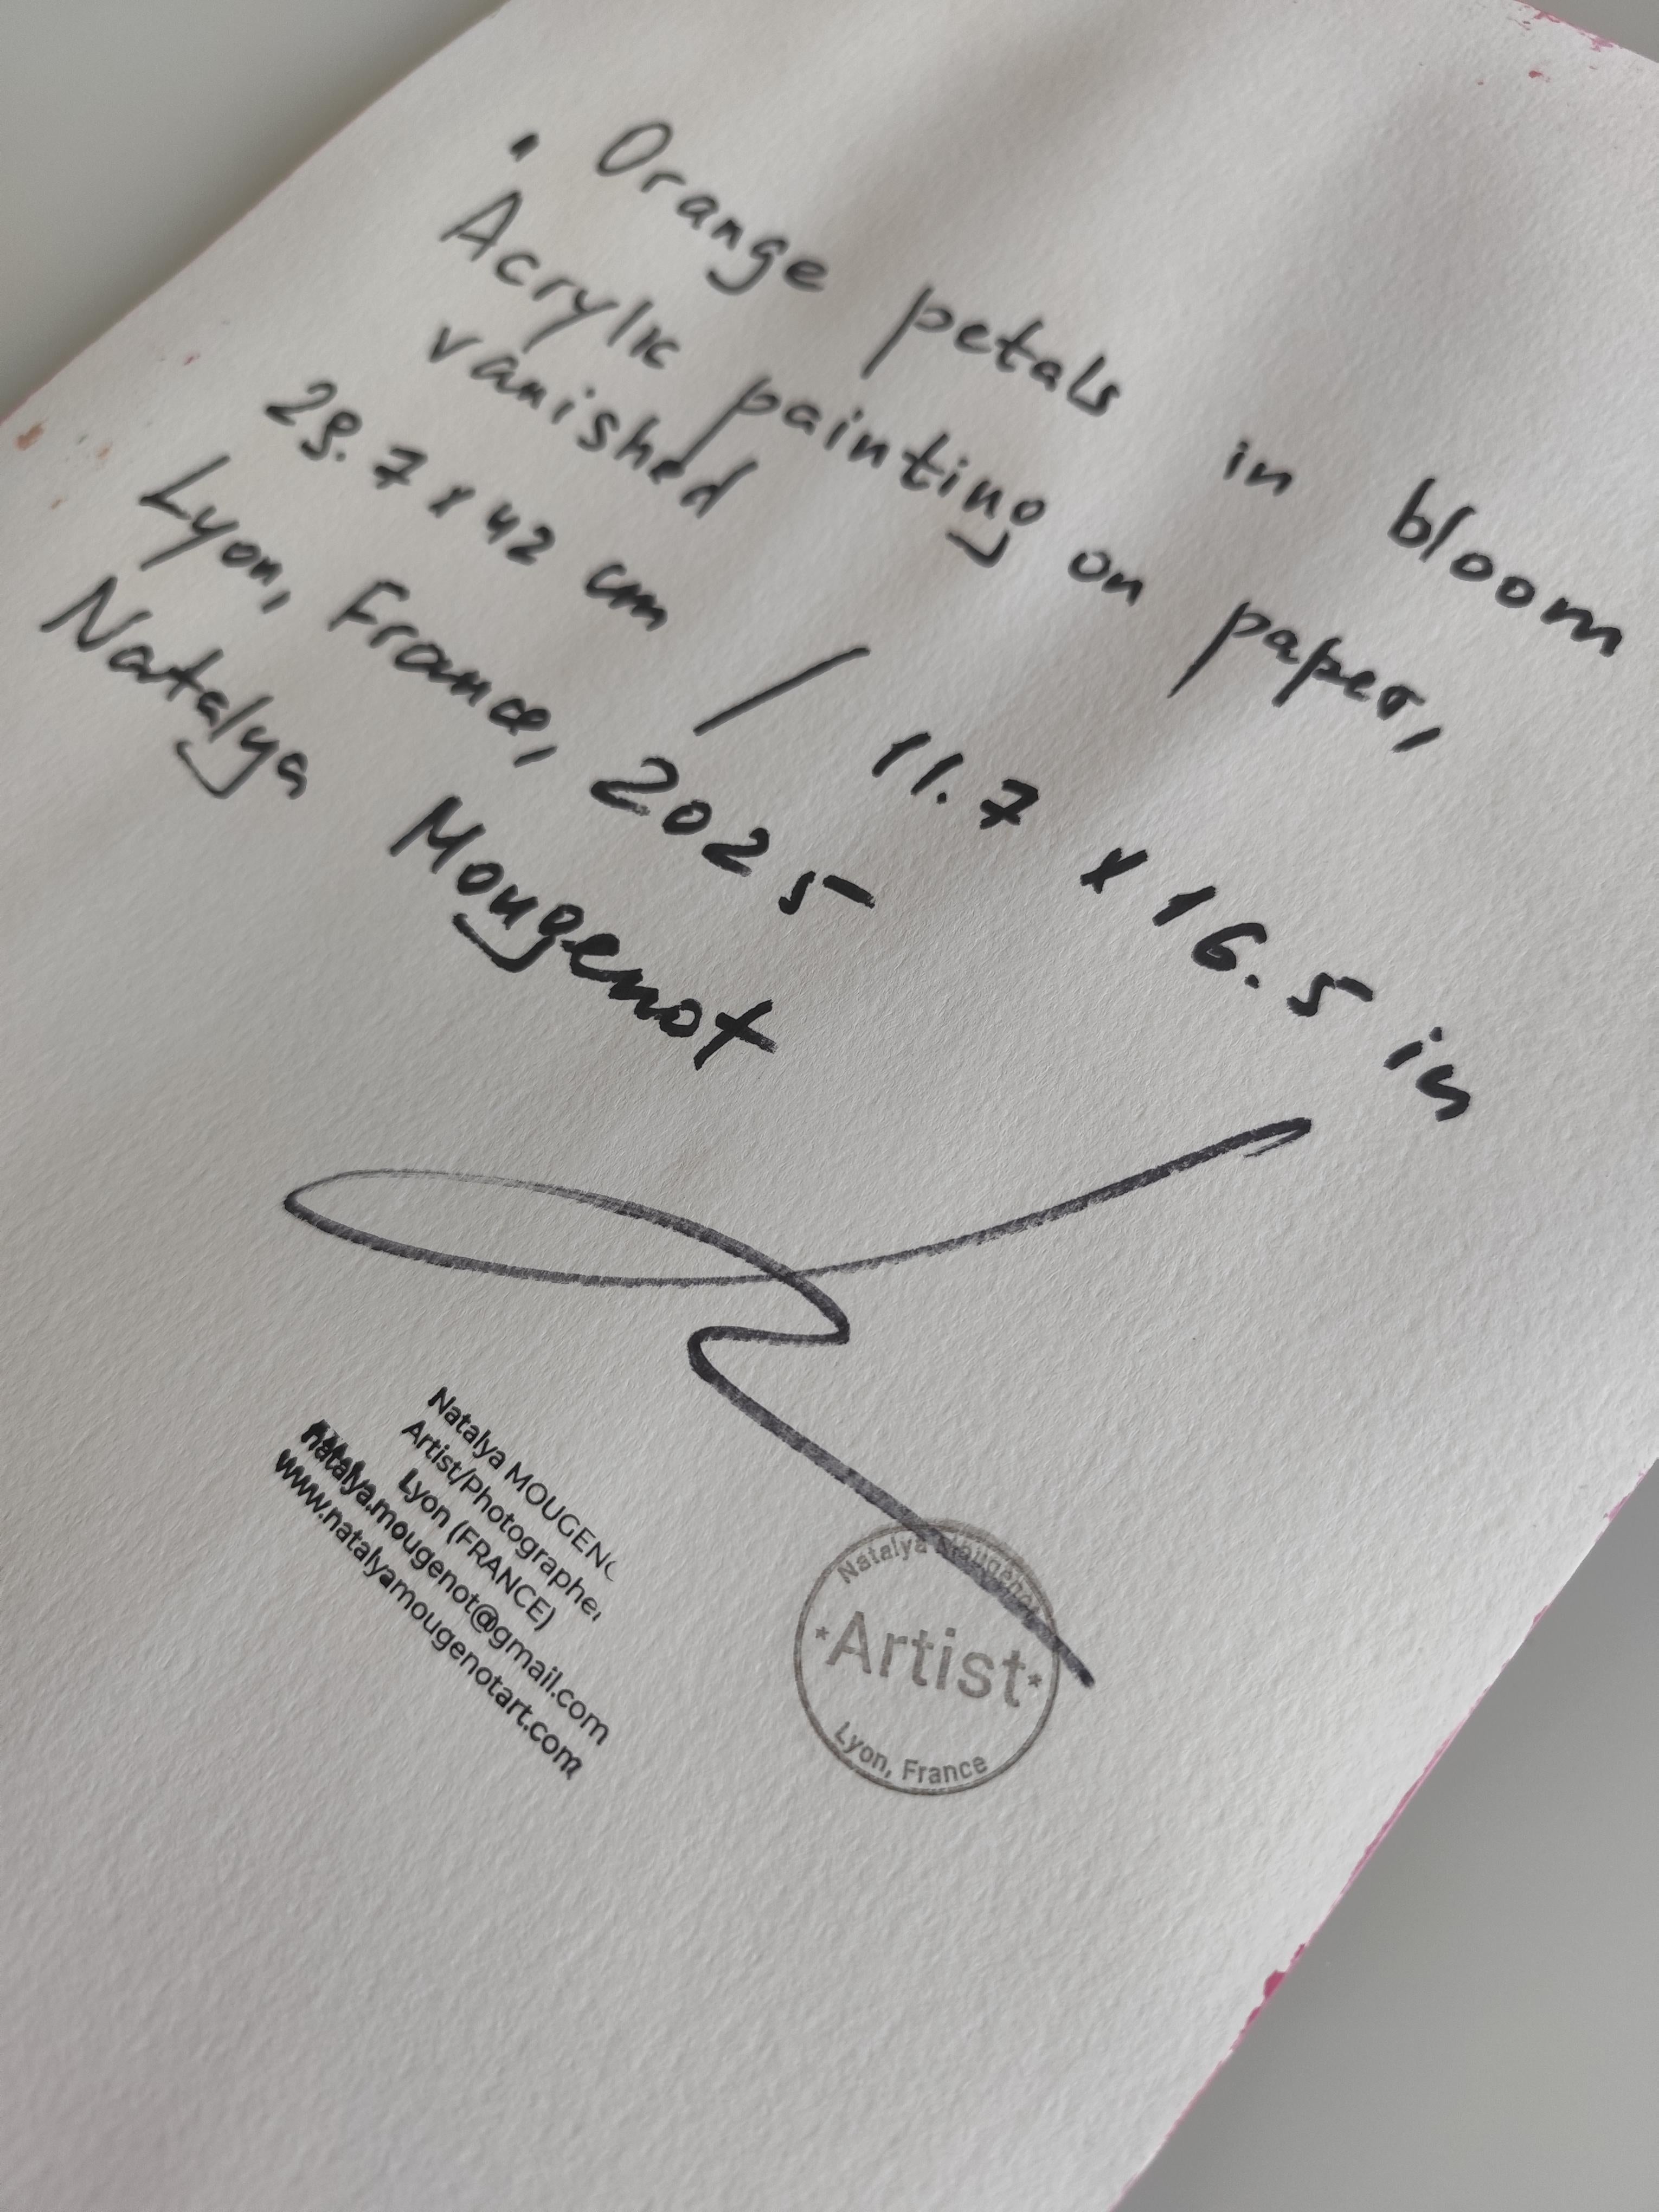 • Orange petals in bloom
Acrylic painting on paper,
vanished
29.7 x 42 cm / 11.7 x 16.5 in
Lyon, France, 2025
Natalya Mougenot
Natalya MOUGENO
Artist/Photographer
Lyon (FRANCE)
natalya.mougenot@gmail.com
www.natalyamougenotart.com
Natalya Mougenot
*Artist*
Lyon, France